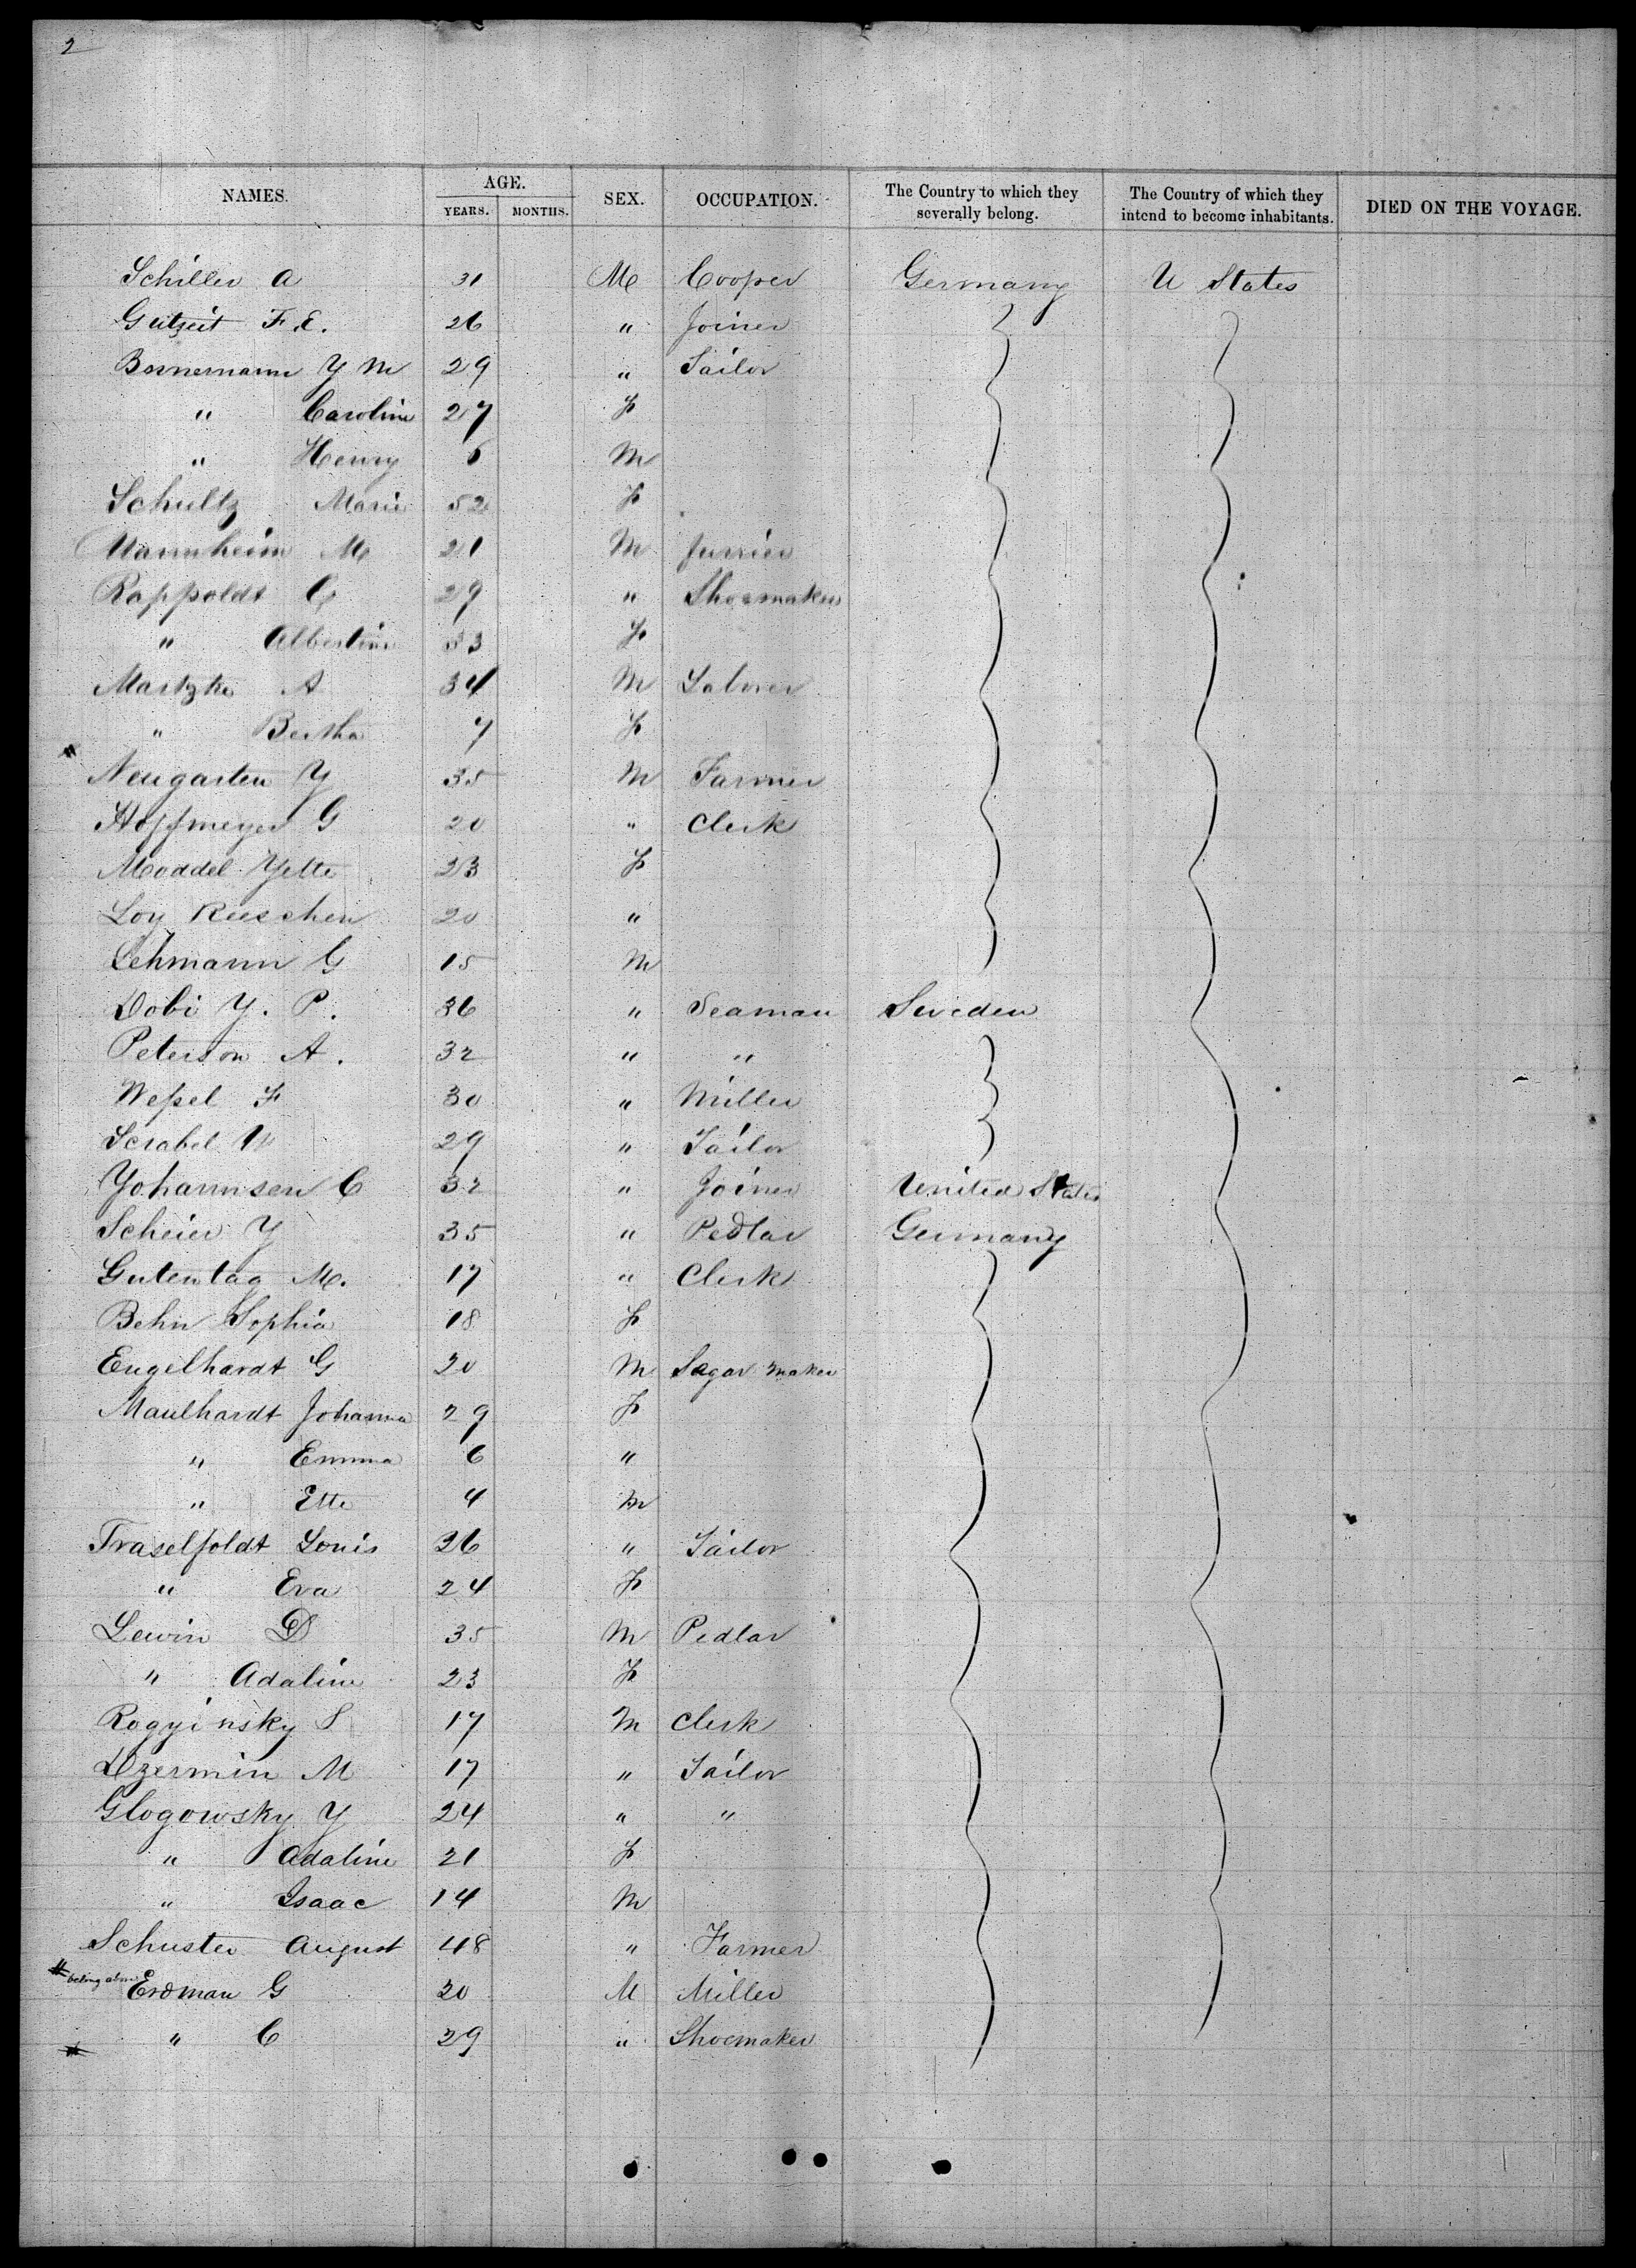 2
NAMES. AGE. SEX. OCCUPATION. The Country to which they severally belong. The Country of which they intend to become inhabitants. DIED ON THE VOYAGE.
YEARS. MONTHS.
Schiller A 31 M Cooper Germany U States
Gutzeit F. E. 26 " Joiner
Bornemann Y M 29 " Tailor
" Caroline 27 F
" Henry 6 M
Schultz Marie 52 F
Mannheim M 21 M Furrier
Rappoldt C 29 " Shoemaker
" Albertine 33 F
Martzke A 34 M Laborer
" Bertha 7 F
Neugarten Y 35 M Farmer
Hoffmeyer G 20 " Clerk
Moddel Yette 23 F
Loy Reeschen 20 "
Lehmann G 15 M
Dobi Y. P. 36 " Seaman Sweden
Peterson A. 32 " "
Weßel F 30 " Miller
Scrabel W 29 " Tailor
Yohannsen C 32 " Joiner United States
Scheier Y 35 " Pedlar Germany
Gutentag M. 17 " Clerk
Behn Sophia 18 F
Engelhardt G 20 M Segar maker
Maulhardt Johanna 29 F
" Emma 6 "
" Ette 4 M
Traselfoldt Louis 26 " Tailor
" Eva 24 F
Lewin D 35 M Pedlar
" Adaline 23 F
Rogyinsky S 17 M Clerk
Dzermin M 17 " Tailor
Glogowsky Y 24 " "
" Adaline 21 F
" Isaac 14 M
Schuster August 48 " Farmer
belong above Erdman G 20 M Miller
" C 29 " Shoemaker